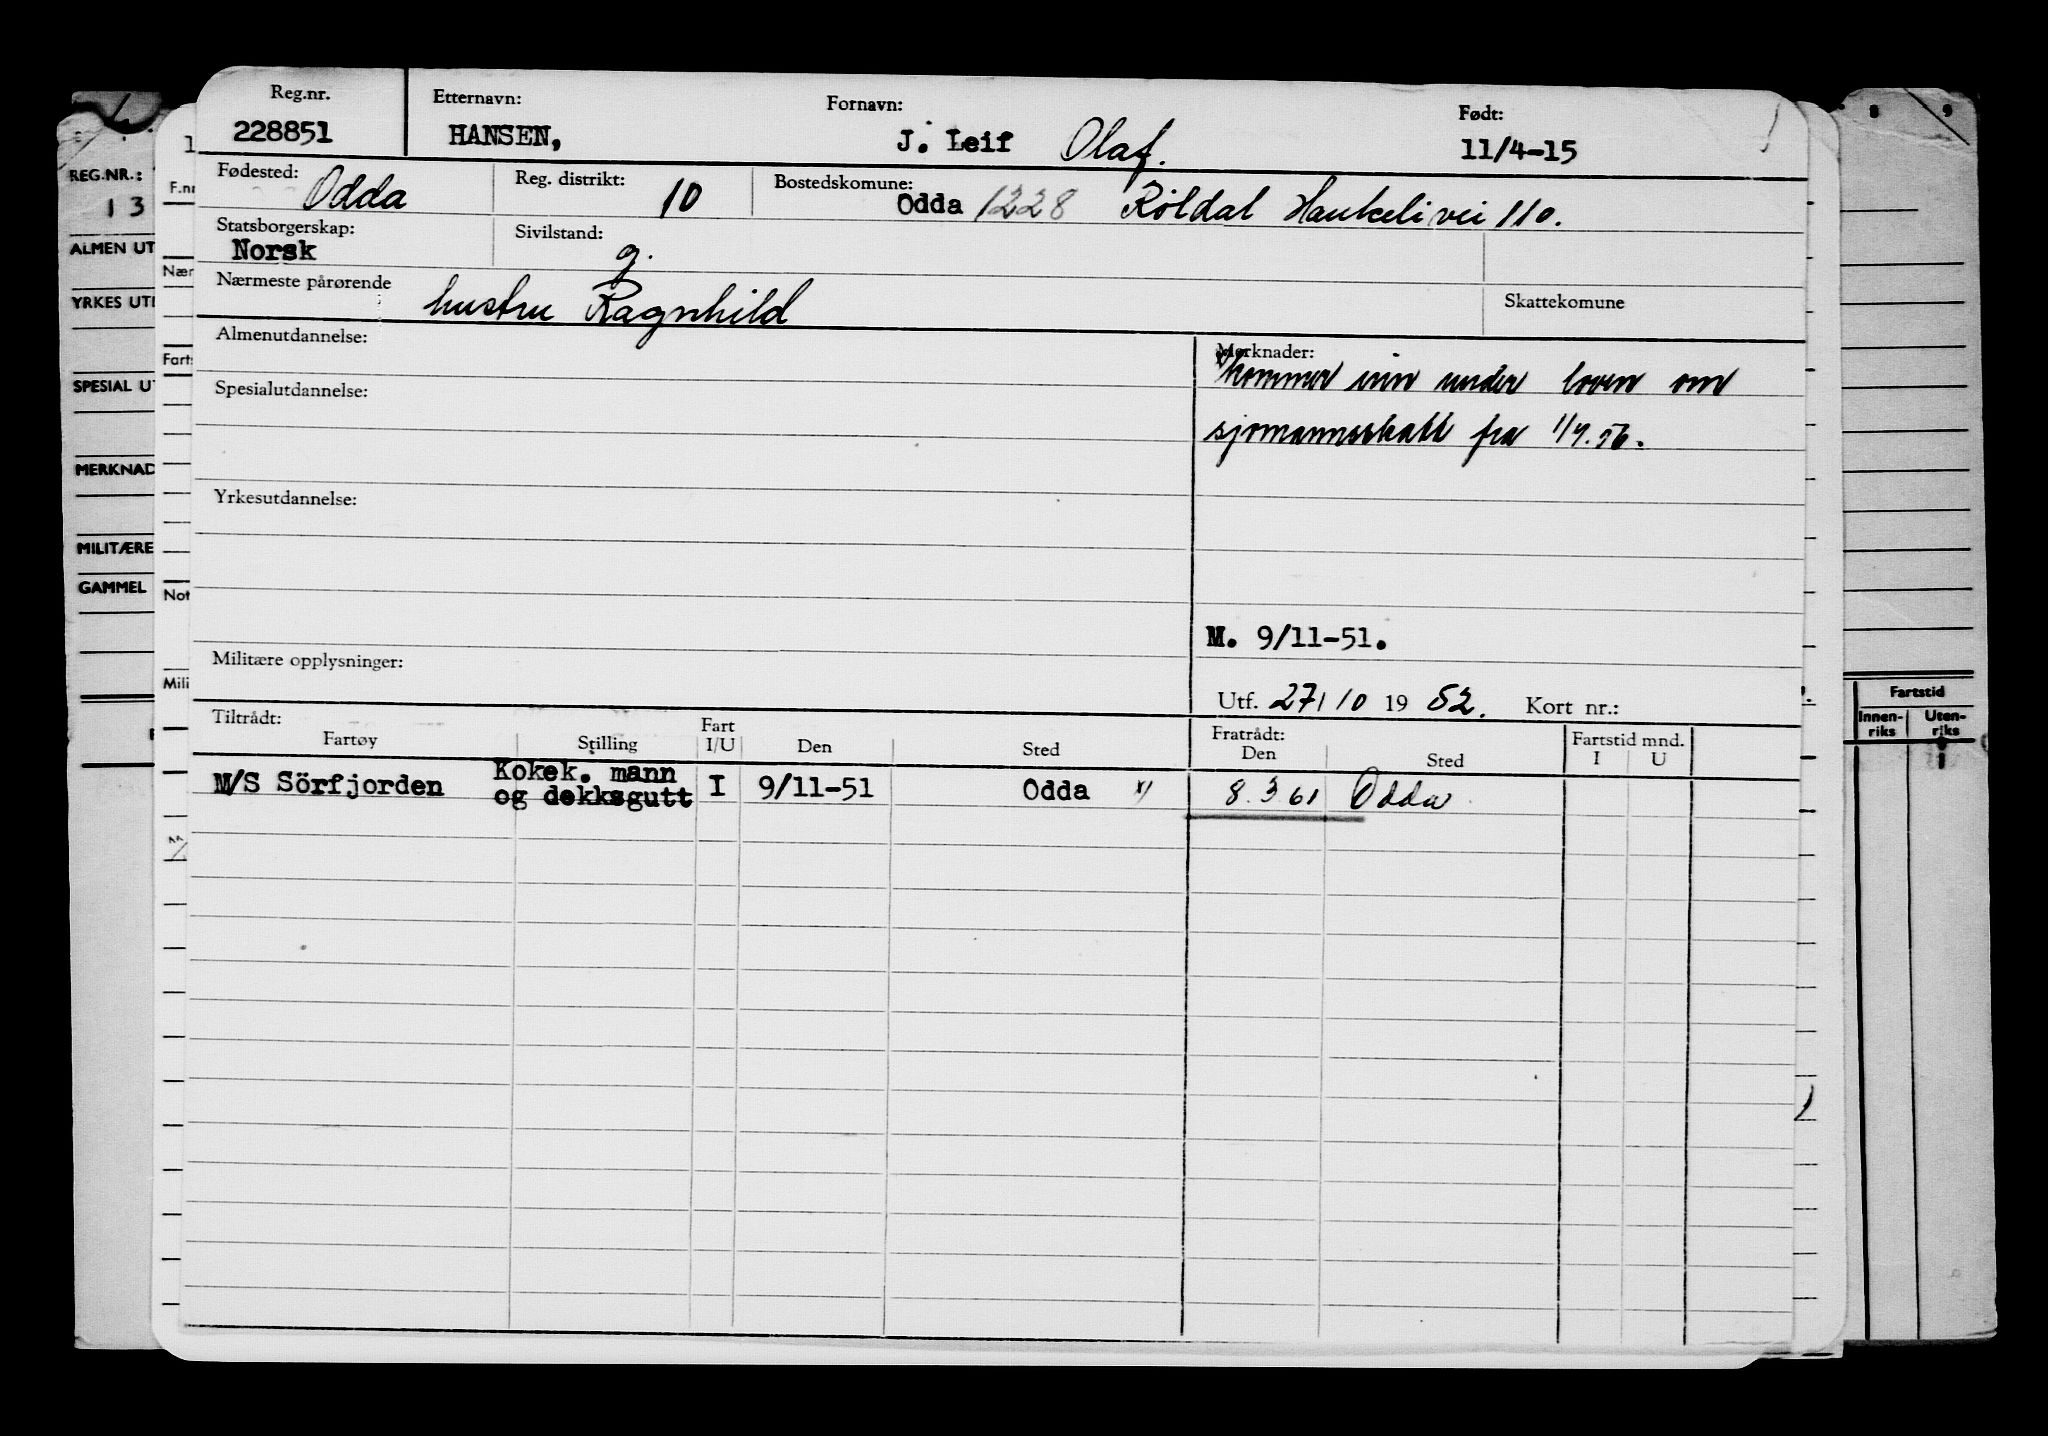 Reg.nr. Etternavn: Fornavn: Født:
228851 HANSEN, J. Leif Olaf. 11/4-15
Fødested: Odda Reg. distrikt: 10 Bostedskomune: Odda 1228 Röldal Haukelivei 110.
Statsborgerskap: Sivilstand:
Norsk g.
Nærmeste pårørende hustru Ragnhild Skattekomune
Almenutdannelse: Merknader:
x/kommer inn under loven om
Spesialutdannelse:
sjømannsskatt fra 1/7.56.
Yrkesutdannelse:
M. 9/11-51.
Militære opplysninger:
Utf. 27/10 19 52. Kort nr.:
Tiltrådt: Fart Fratrådt: Fartstid mnd.
Fartøy Stilling I/U Den Sted Den Sted I U
M/S Sörfjorden Kokek. mann I 9/11-51 Odda x) 8.3 61 Odda
og dekksgutt
REG.NR.:
1 3
ALMEN UT
YRKES UT
SPESIAL UT
MERKNAD
MILITÆRE
GAMMEL
1
F.nr
Nær
Farts
Not
Mili
8 9
Fartstid
Innen-riks Uten-riks